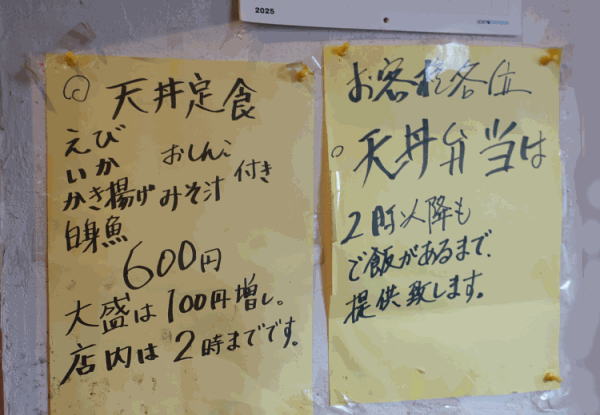 2025
◎ 天丼定食
えび
いか
かき揚げ
白身魚
おしんこ
みそ汁
付き
600円
大盛は100円増し。
店内は2時までです。
お客様各位
○天丼弁当は
2時以降も
ご飯があるまで、
提供致します。